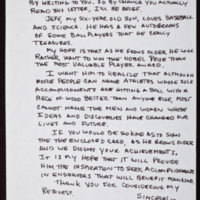 BY WRITING TO YOU. SO BY CHANCE YOU ACTUALLY
READ THIS LETTER, I'LL BE BRIEF.
JEFF, MY SIX-YEAR OLD SON, LOVES BASEBALL
AND SCIENCE. HE HAS A FEW AUTOGRAPHS
OF SOME BALL PLAYERS THAT HE REALLY
TREASURES.
MY HOPE IS THAT AS HE GROWS OLDER HE WILL
RATHER WANT TO WIN THE NOBEL PRIZE THAN
THE MOST VALUABLE PLAYER AWARD.
I WANT HIM TO REALIZE THAT ALTHOUGH
MORE PEOPLE CAN NAME ATHLETES WHOSE SOLE
ACCOMPLISHMENTS ARE HITTING A BALL WITH A
PIECE OF WOOD BETTER THAN ANYONE ELSE, MOST
CANNOT NAME THE MEN AND WOMEN WHOSE
IDEAS AND DISCOVERIES HAVE CHANGED OUR
LIVES AND FUTURE.
IF YOU WOULD BE SO KIND AS TO SIGN
THE THE ENCLOSED CARD, AS HE GROWS OLDER
AND WE DISCUSS YOUR ACHIEVEMENTS,
IT IS MY HOPE THAT IT WILL PROVIDE
HIM THE INSPIRATION TO SEEK ACCOMPLISHMENTS
IN ENDEAVORS THAT WILL BENEFIT MANKIND.
THANK YOU FOR CONSIDERING MY
REQUEST.
SINCERELY